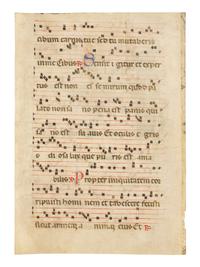 cibum carnis tue sed tu mutaberis
in me Cibus Sensit igitur et exper
tus est non es se mirum quod pa
lato non sa no pena est pa nis qui
sano est su avis Et oculis e gris
o di osa lux que pu ris est ama
bilis Propter iniquitatem cor
ripuisti homi nem et tabescere fecisti
sicut aranea a nimam eius Et